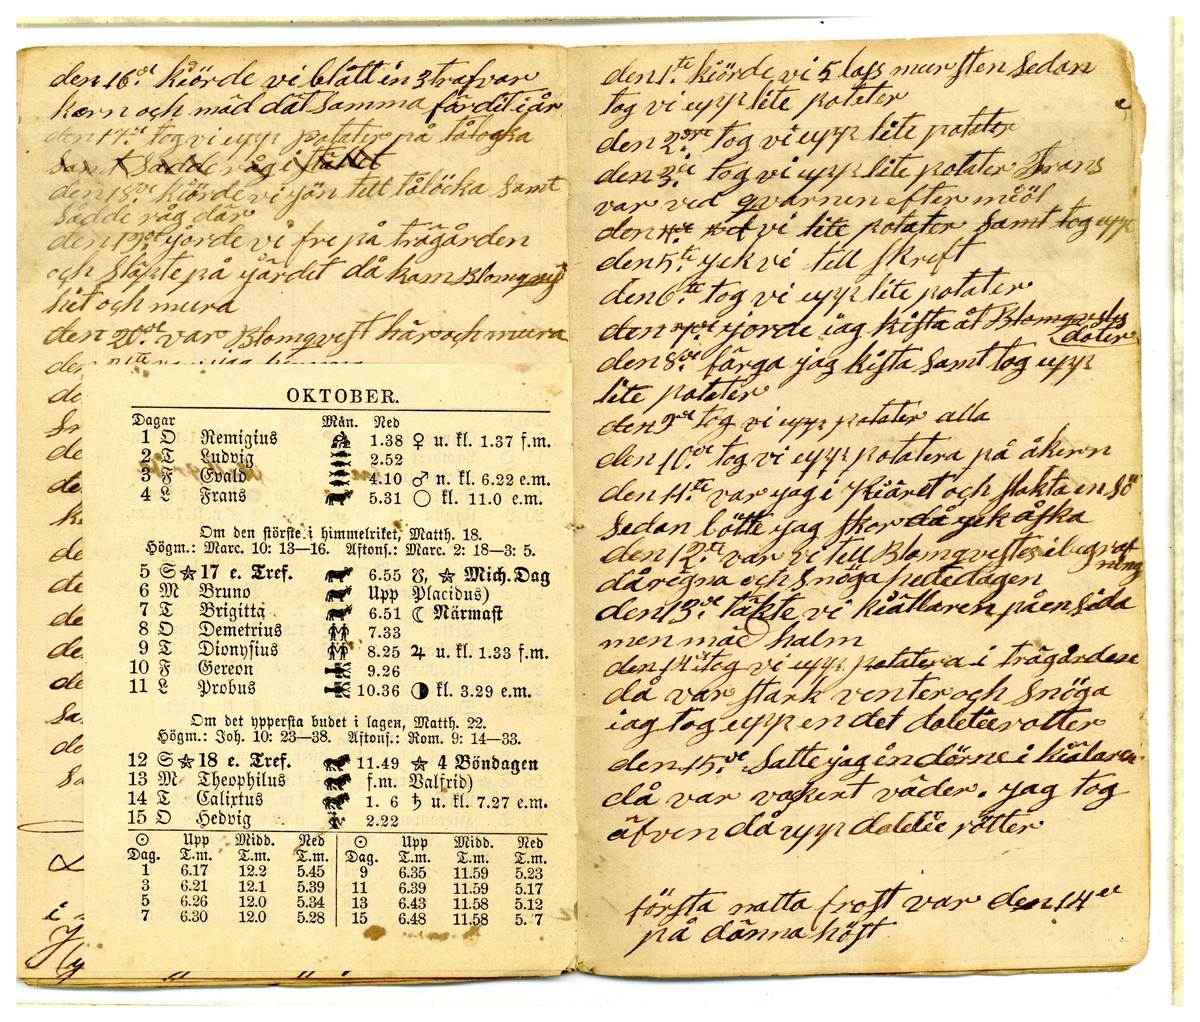 den 16de kiörde vi blått in 3 trafvar
korn och mäd dät samma färdit i år
den 17de tog vi upp potater på tålocka
samt Sådde råg i stället
den 18de kiörde vi jön till tålöcka samt
sådde råg där
den 19de jorde vi fre på trägården
och släpte på järdet då kam Blomqvist
hit och mura
den 20de var Blomqvest här och mura
OKTOBER.
Dagar Mån. Ned
1 O Remigius 1.38 ♀ u. kl. 1.37 f.m.
2 T Ludvig 2.52
3 F Evald 4.10 ♂ n. kl. 6.22 e.m.
4 L Frans 5.31 ○ kl. 11.0 e.m.
Om den störste i himmelriket, Matth. 18.
Högm.: Marc. 10: 13—16. Aftons.: Marc. 2: 18—3: 5.
5 S ☆ 17 e. Tref. 6.55 ☋, ☆ Mich. Dag
6 M Bruno Upp Placidus)
7 T Brigitta 6.51 ☾ Närmast
8 O Demetrius 7.33
9 T Dionysius 8.25 ♃ u. kl. 1.33 f.m.
10 F Gereon 9.26
11 L Probus 10.36 ◑ kl. 3.29 e.m.
Om det yppersta budet i lagen, Matth. 22.
Högm.: Joh. 10: 23—38. Aftons.: Rom. 9: 14—33.
12 S ☆ 18 e. Tref. 11.49 ☆ 4 Böndagen
13 M Theophilus f.m. Valfrid)
14 T Calixtus 1. 6 ♄ u. kl. 7.27 e.m.
15 O Hedvig 2.22
☉ Upp Midd. Ned ☉ Upp Midd. Ned
Dag. T.m. T.m. T.m. Dag. T.m. T.m. T.m.
1 6.17 12.2 5.45 9 6.35 11.59 5.23
3 6.21 12.1 5.39 11 6.39 11.59 5.17
5 6.26 12.0 5.34 13 6.43 11.58 5.12
7 6.30 12.0 5.28 15 6.48 11.58 5. 7
den 1ste kiörde vi 5 lass mursten Sedan
tog vi upp lite potater
den 2dre tog vi upp lite potater
den 3di tog vi upp lite potater Frans
var ved qvarnen efter miöl
den 4de vi lite potater samt tog upp
den 5te jek vi till skreft
den 6te tog vi upp lite potater
den 7de jorde iag kista åt Blomqvestes
doter
den 8de färga jag kista samt tog upp
lite potater
den 9de tog vi upp potater alla
den 10de tog vi upp potatera på åkern
den 11te var jag i Kiäret och slakta en sö
Sedan bötte jag skor då jek åska
den 12te var vi till Blomqvestes i begraf
ning
då regna och snöga hele dagen
den 13de täkte vi kiällaren på en sida
men mäe halm
den 14de tog vi upp potatera i trägården
då var stark venter och snöga
iag tog upp en det daldierotter
den 15de Satte jag in dörne i kiälaren
då var vakert väder. jag tog
äfven då upp daldie rötter
första natta frost var den 14de
på dänna höst